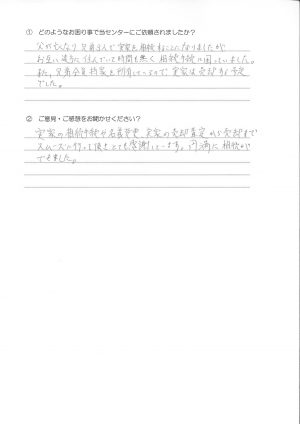 ① どのようなお困り事で当センターにご依頼されましたか？
父が亡くなり、兄弟3人で実家を相続することになりましたが
お互い遠方に住んでいて時間も無く、相続手続に困っていました。
また、兄弟全員持家を所有しているので、実家は売却する予定
でした。
② ご意見・ご感想をお聞かせください？
実家の相続手続や名義変更、実家の売却査定から売却まで
スムーズに行って頂きとても感謝しています。円満に相続が
できました。